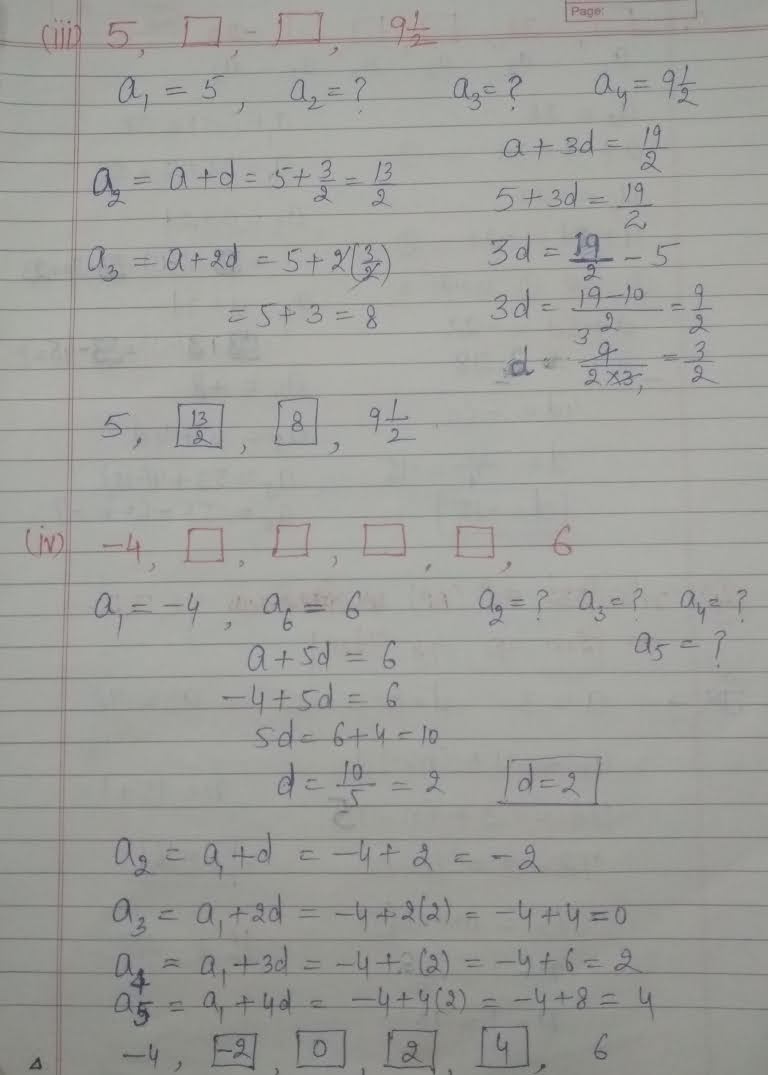 Page:
(iii) 5, □, □, 9 1/2
a₁ = 5, a₂ = ? a₃ = ? a₄ = 9 1/2
a + 3d = 19/2
a₂ = a + d = 5 + 3/2 = 13/2
5 + 3d = 19/2
a₃ = a + 2d = 5 + 2(3/2)
3d = 19/2 - 5
= 5 + 3 = 8
3d = (19 - 10)/2 = 9/2
d = 9/(2×3) = 3/2
5, 13/2, 8, 9 1/2
(iv) -4, □, □, □, □, 6
a₁ = -4, a₆ = 6 a₂ = ? a₃ = ? a₄ = ?
a₅ = ?
a + 5d = 6
-4 + 5d = 6
5d = 6 + 4 = 10
d = 10/5 = 2 d = 2
a₂ = a₁ + d = -4 + 2 = -2
a₃ = a₁ + 2d = -4 + 2(2) = -4 + 4 = 0
a₄ = a₁ + 3d = -4 + (2) = -4 + 6 = 2
a₅ = a₁ + 4d = -4 + 4(2) = -4 + 8 = 4
-4, -2, 0, 2, 4, 6